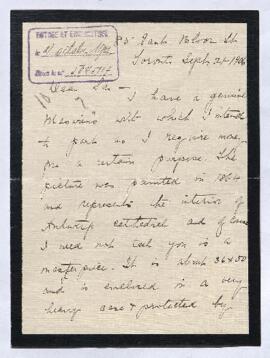 25 East Bloor St
Toronto Sept 24 1906
Dear Sir —
I have a genuine
which I intend
to part as I require money
for a certain purpose. The
picture was painted in 1864
and represents the interior of
Antwerp cathedral and of course
I need not tell you is a
masterpiece. It is about 36 x 50
and is enclosed in a very
heavy case & protected by